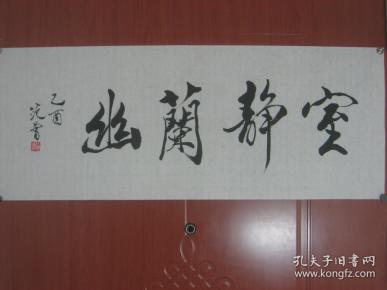 室静蘭幽
乙酉
范曾
孔夫子旧书网
www.kongfz.com